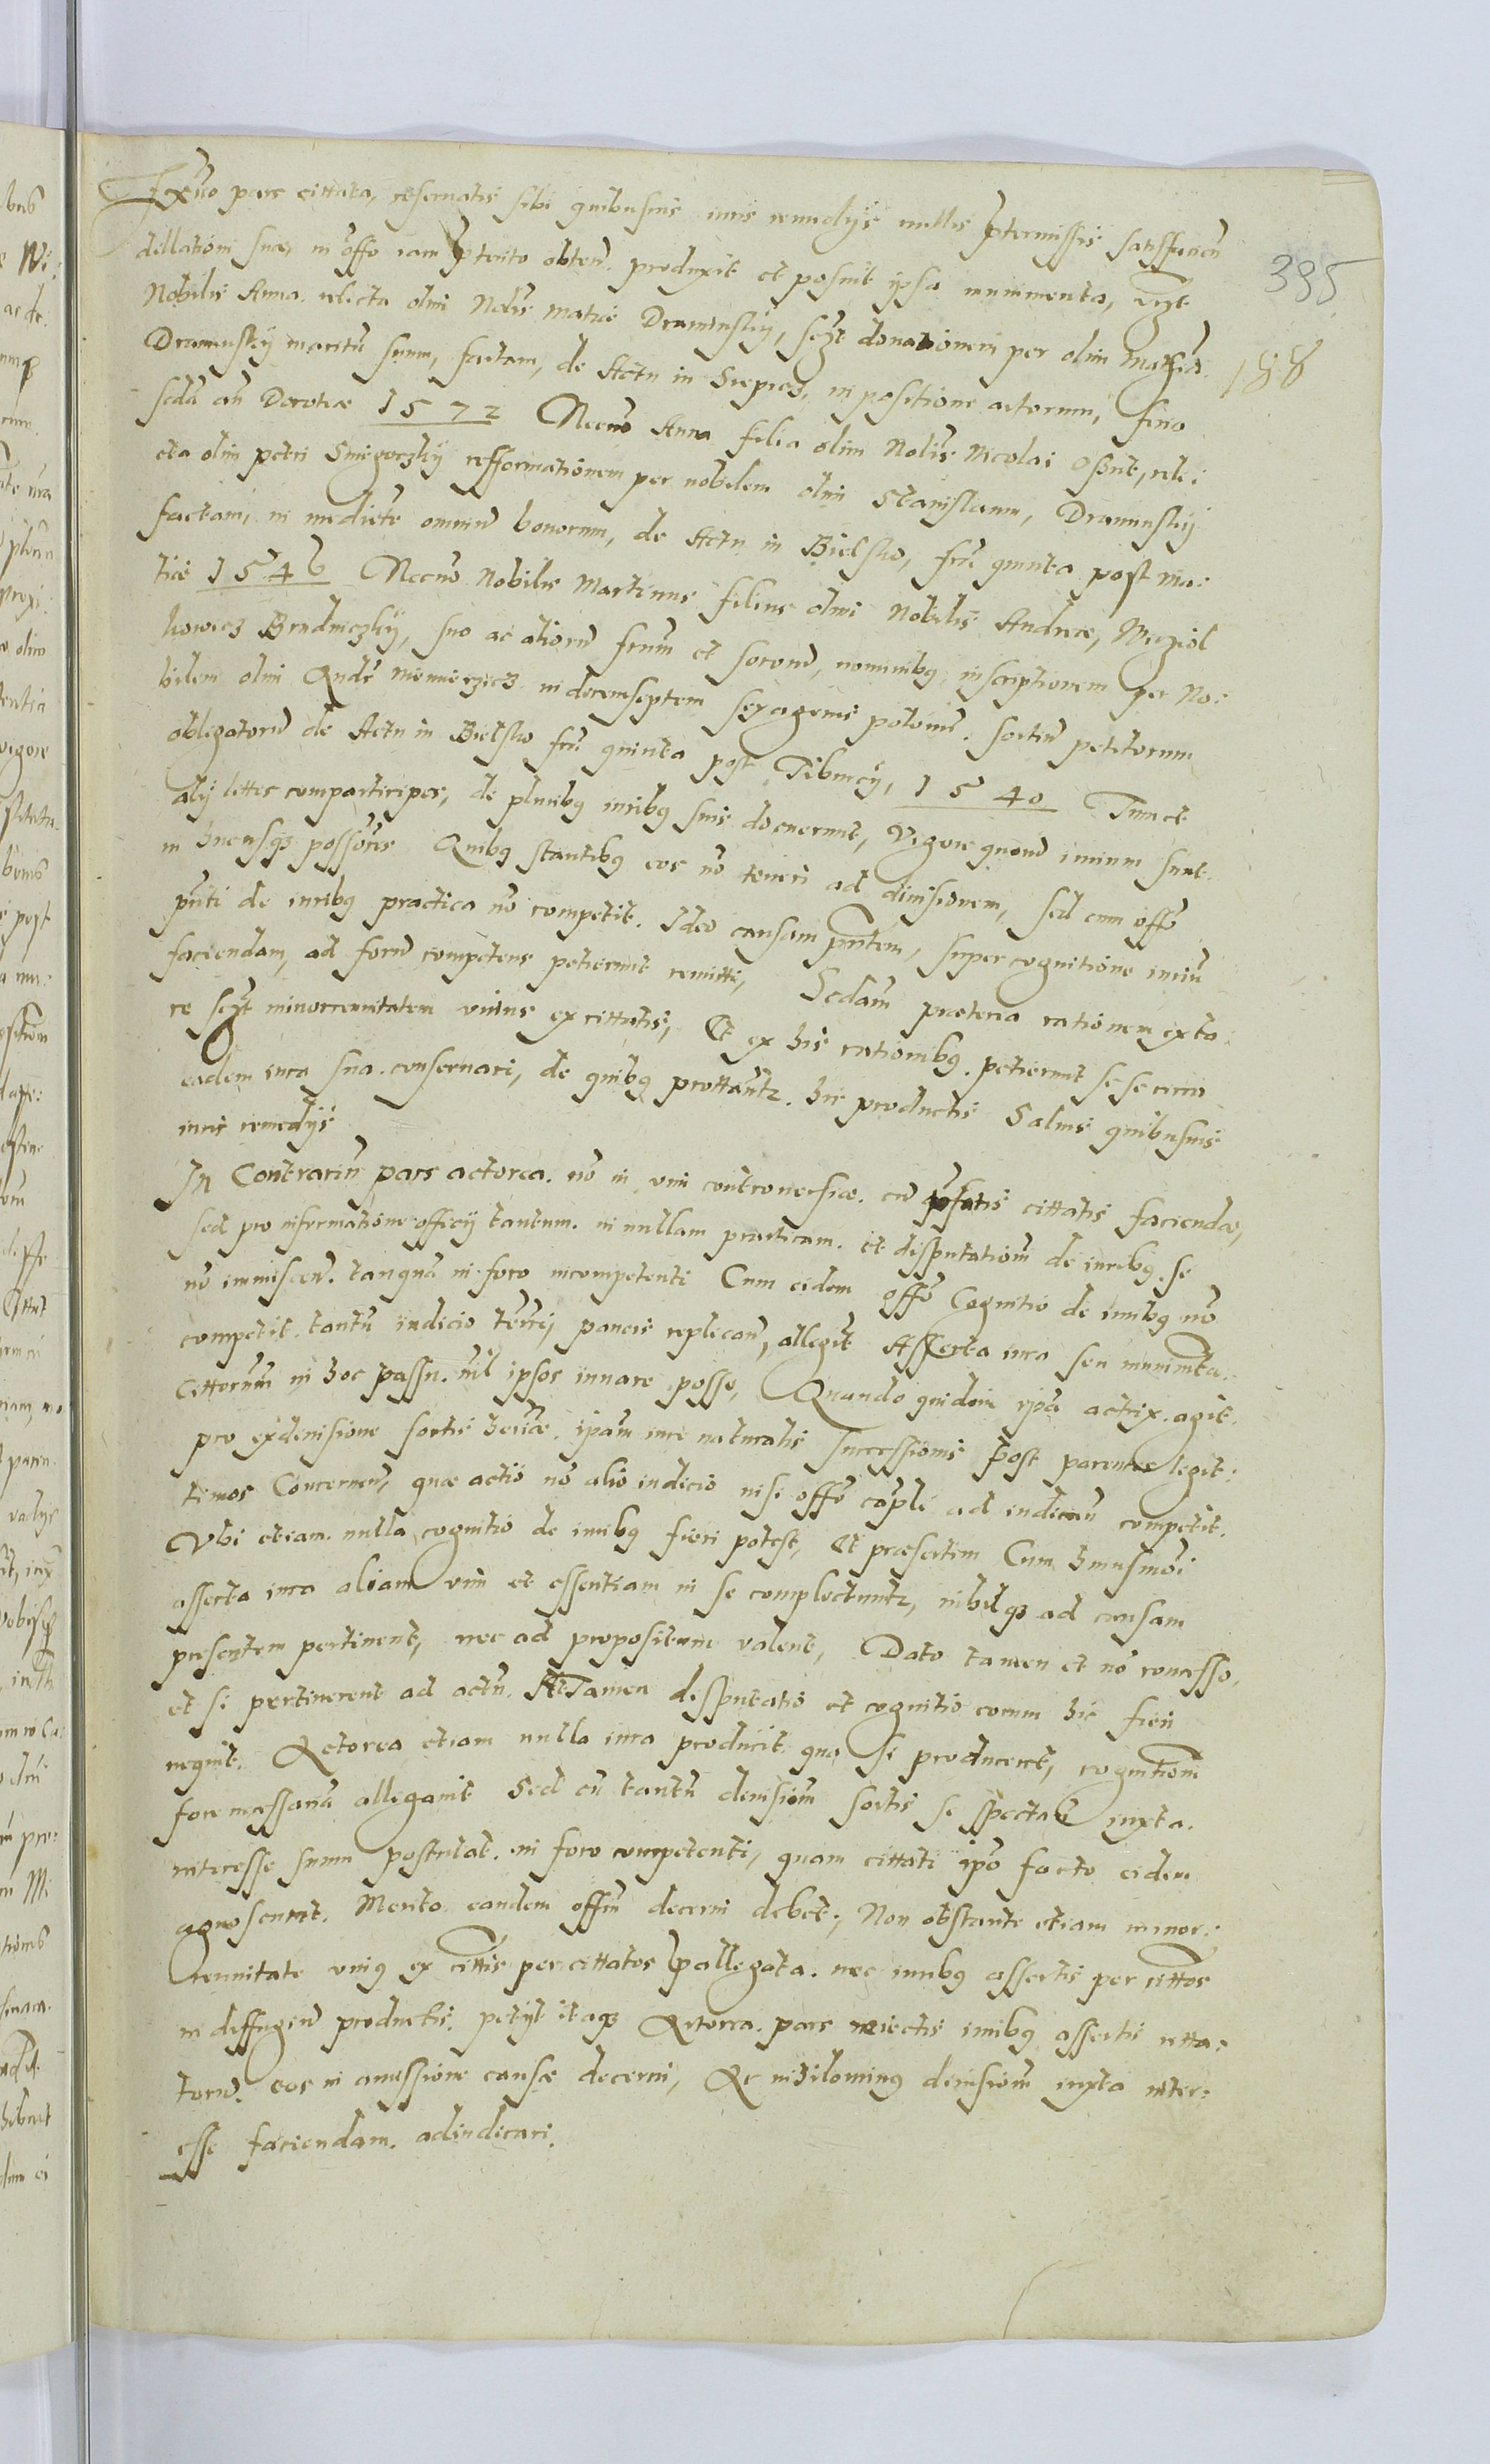 Ex quo pars cittata, reservatis sibi quibusuis iuris remedijs nullis ptermissis satisfacien
dillationi suae, in offo iam ptento obten. produxit et posuit ipsa munimenta, vizt
Nobilis Anna relicta olim Nobis Mathiae Draminskij, sczt donationem per olim Mathia
Draminskij maritu suum, factam, de Actu in Sieprcz, in positione actorum, feria
scda an Doroteae 1572 Necno Anna filia olim Nobis Nicolai Osznt, reli:
cta olim petri Smigorzkij refformationem per nobilem olim Stanislaum, Draminskij
factam, in medieta omniu bonorum, de Actu in Bielsko, fri quinta post Ma:
tiae 1546 Necno Nobilis Martinus filius olim Nobilis Andreae, Mcziol
kowicz Brudniczkij, suo ac aliorū frum et sororū, nominibq inscriptionem per No:
bilem olim Andr Niemierzicz in decemseptem sexagenis polonic. sortiu petitorum
obligatorū de Actu in Bielsko fri quinta post Tiburcij, 1540 Tum et
alij littes comparticipes, de pluribq iuribq suis docuerunt, Vigore quorū iurium sunt
in hucusqz possores Quibq stantibq eos no teneri ad diuisionem, sed cum offo
pnti de iuribq practica no competit. Ideo causam pntem, super cognitione iuriu
faciendam, ad forū competens petierunt remitti, Scdam praeterea rationem exto
re sczt minorennitatem vnius ex cittatis, Et ex his rationibq. petierunt se se circa
eadem iura sua conseruari, de quibq prottantr. hic productis Saluis quibusuis
iuris remedijs
In Contrariu pars actorea. no in vim controuersiae. cu pfatis cittatis facienda,
sed pro informatione officij tantum. in nullam practicam. et disputationem de iuribq. se
no immiscen. tanquā in foro incompetenti Cum eidem offo Cognitio de iuribq no
competit. tantu iudicio terrri, paucis replican, allegit Asserta iura seu munimta.
Cittorum in hoc passu. nil ipsos iuuare posse, Quando quidem ipa actrix. agit.
pro exdiuisione sortis heriae. ipam iure naturalis successionis post parentes legit:
timos Concernen, quae actio no alio iudicio nisi offo capli ad iudican competit.
Vbi etiam nulla cognitio de iuribq fieri potest, Et praesertim Cum huiusmoi
asserta iura aliam vim et essentiam in se complectuntr, nihilqz ad causam
presentem pertinent, nec ad propositum valent, Dato tamen et no concesso,
et si pertinerent ad actu. Attamen disputatio et cognitio eorum hic fieri
nequit. Actorea etiam nulla iura producit qua si produceret, cognitionem
fore necessaria allegarit Sed cu tantu diuisiom sortis se spectan iuxta.
interesse suum postulat. in foro competenti, quam cittati ipo facto eidem
agnoscunt. Merito eandem offm decerni debet., Non obstante etiam minor:
rennitate vniq ex cittis per cittatos pallegata. nec iuribq assertis per cittos
in diffugiu productis. petijt itaqz Actorea. pars reiectis iuribq assertis citta:
torū. eos in amissione causae decerni, Ac nihilominq diuisiom iuxta inter:
esse faciendam. adiudicari.
395
188